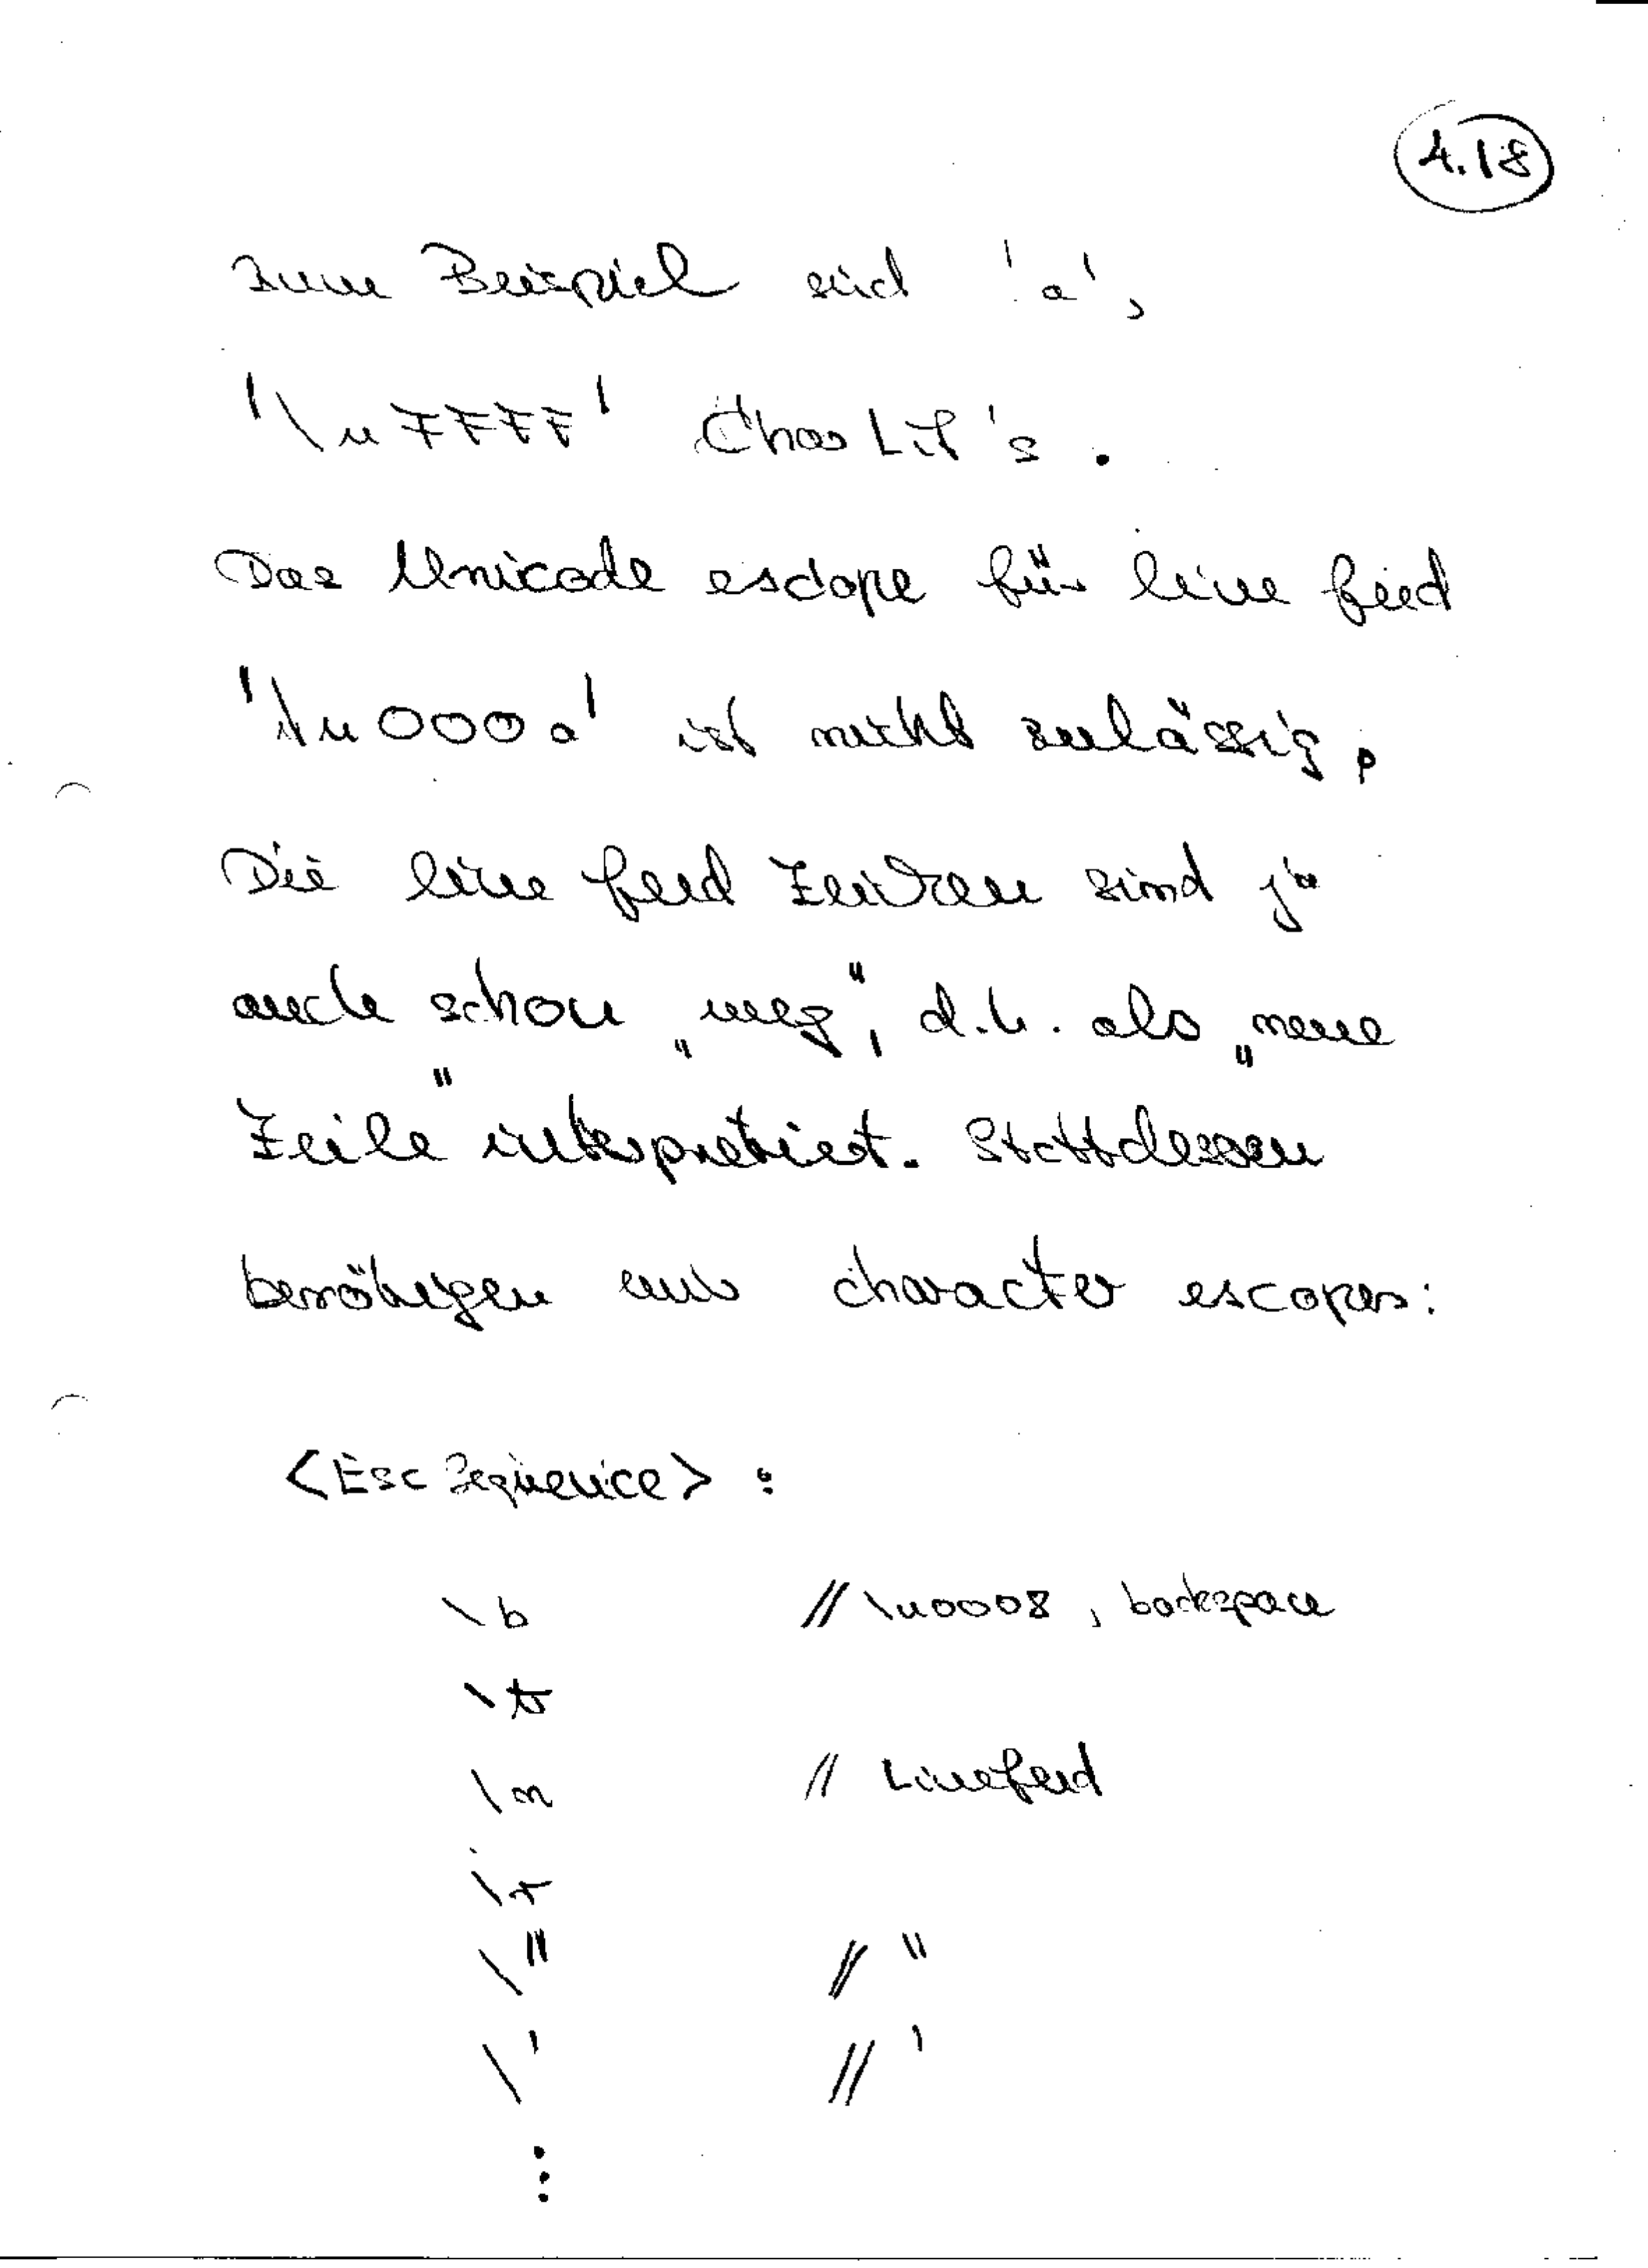 4.18
Zum Beispiel sind 'a',
'\uFFFF' CharLit's.
Das Unicode escape für line feed
'\u000a' ist nicht zulässig.
Die line feed Zeichen sind ja
auch schon „weg", d.h. als „neue
Zeile" interpretiert. Stattdessen
benötigen wir character escapes:
<EscSequence> :
\b // \u0008 , backspace
\t
\n // Linefeed
\r
\" // "
\' // '
⋮